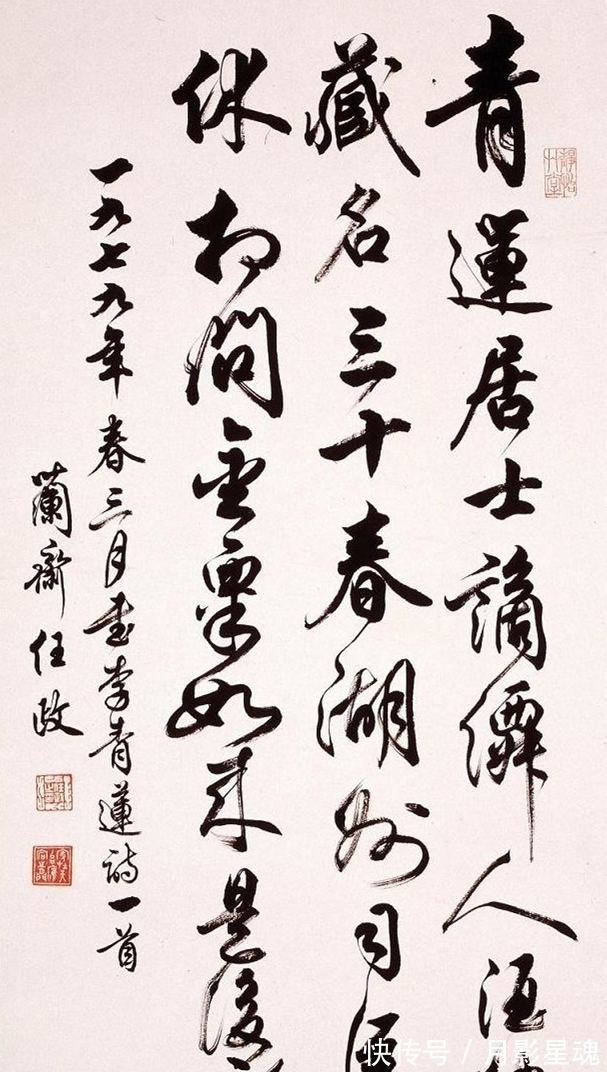 青蓮居士謫僊人酒
藏名三十春湖州司
休相問金粟如来是後
一九七九年春三月書李青蓮詩一首
蘭齋任政
快传号 / 月影星魂